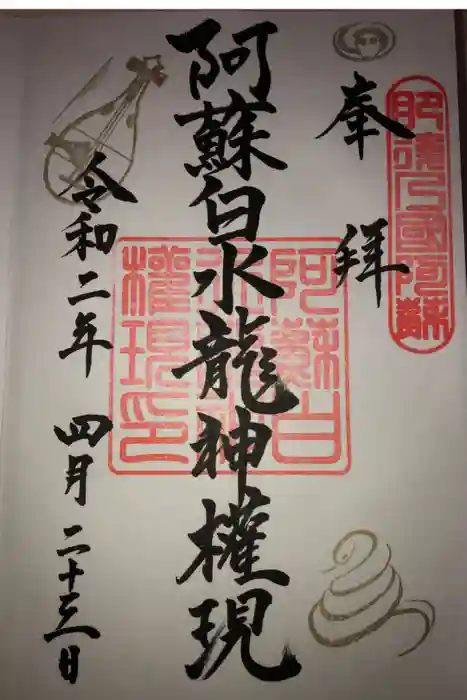 奉拝
肥後乃國阿蘇
阿蘇白水龍神權現
阿蘇白
水龍神
權現印
令和二年 四月 二十三日